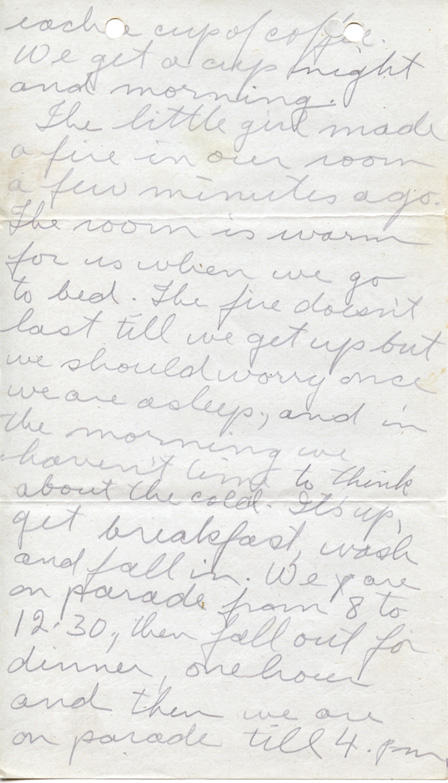 each a cup of coffee.
We get a cup night
and morning.
The little girl made
a fire in our room
a few minutes ago.
The room is warm
for us when we go
to bed. The fire doesn't
last till we get up but
we should worry once
we are asleep, and in
the morning we
haven't time to think
about the cold. Its up,
get breakfast, wash
and fall in. We are
on parade from 8 to
12.30, then fall out for
dinner, one hour
and then we are
on parade till 4. pm